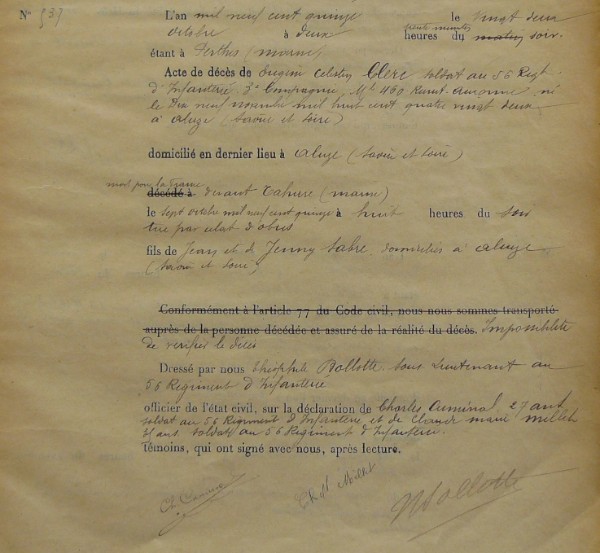 N° 537
L'an mil neuf cent quinze le vingt deux
octobre à deux heures trente minutes du matin soir
étant à Perthes (Marne)
Acte de décès de Eugène Célestin Clerc soldat au 56 Regt
d'Infanterie 3e Compagnie, Mle 460 Recrut. Auxonne, né
le Dix neuf novembre mil huit cent quatre vingt deux
à Aluze (Saône et Loire)
domicilié en dernier lieu à Aluze (Saône et Loire)
mort pour la France
décédé à devant Tahure (Marne)
le sept octobre mil neuf cent quinze à huit heures du soir
tué par éclat d'obus
fils de Jean et de Jenny Sabre domiciliés à Aluze
(Saône et Loire)
Conformément à l'article 77 du Code civil, nous nous sommes transporté
auprès de la personne décédée et assuré de la réalité du décès. Impossibilité
de vérifier le décès
Dressé par nous Théophile Dollotte sous Lieutenant au
56 Régiment d'Infanterie
officier de l'état civil, sur la déclaration de Charles 27 ans
soldat au 56 Régiment d'Infanterie et de Claude Marie
ans soldat au 56 Régiment d'Infanterie.
témoins, qui ont signé avec nous, après lecture.